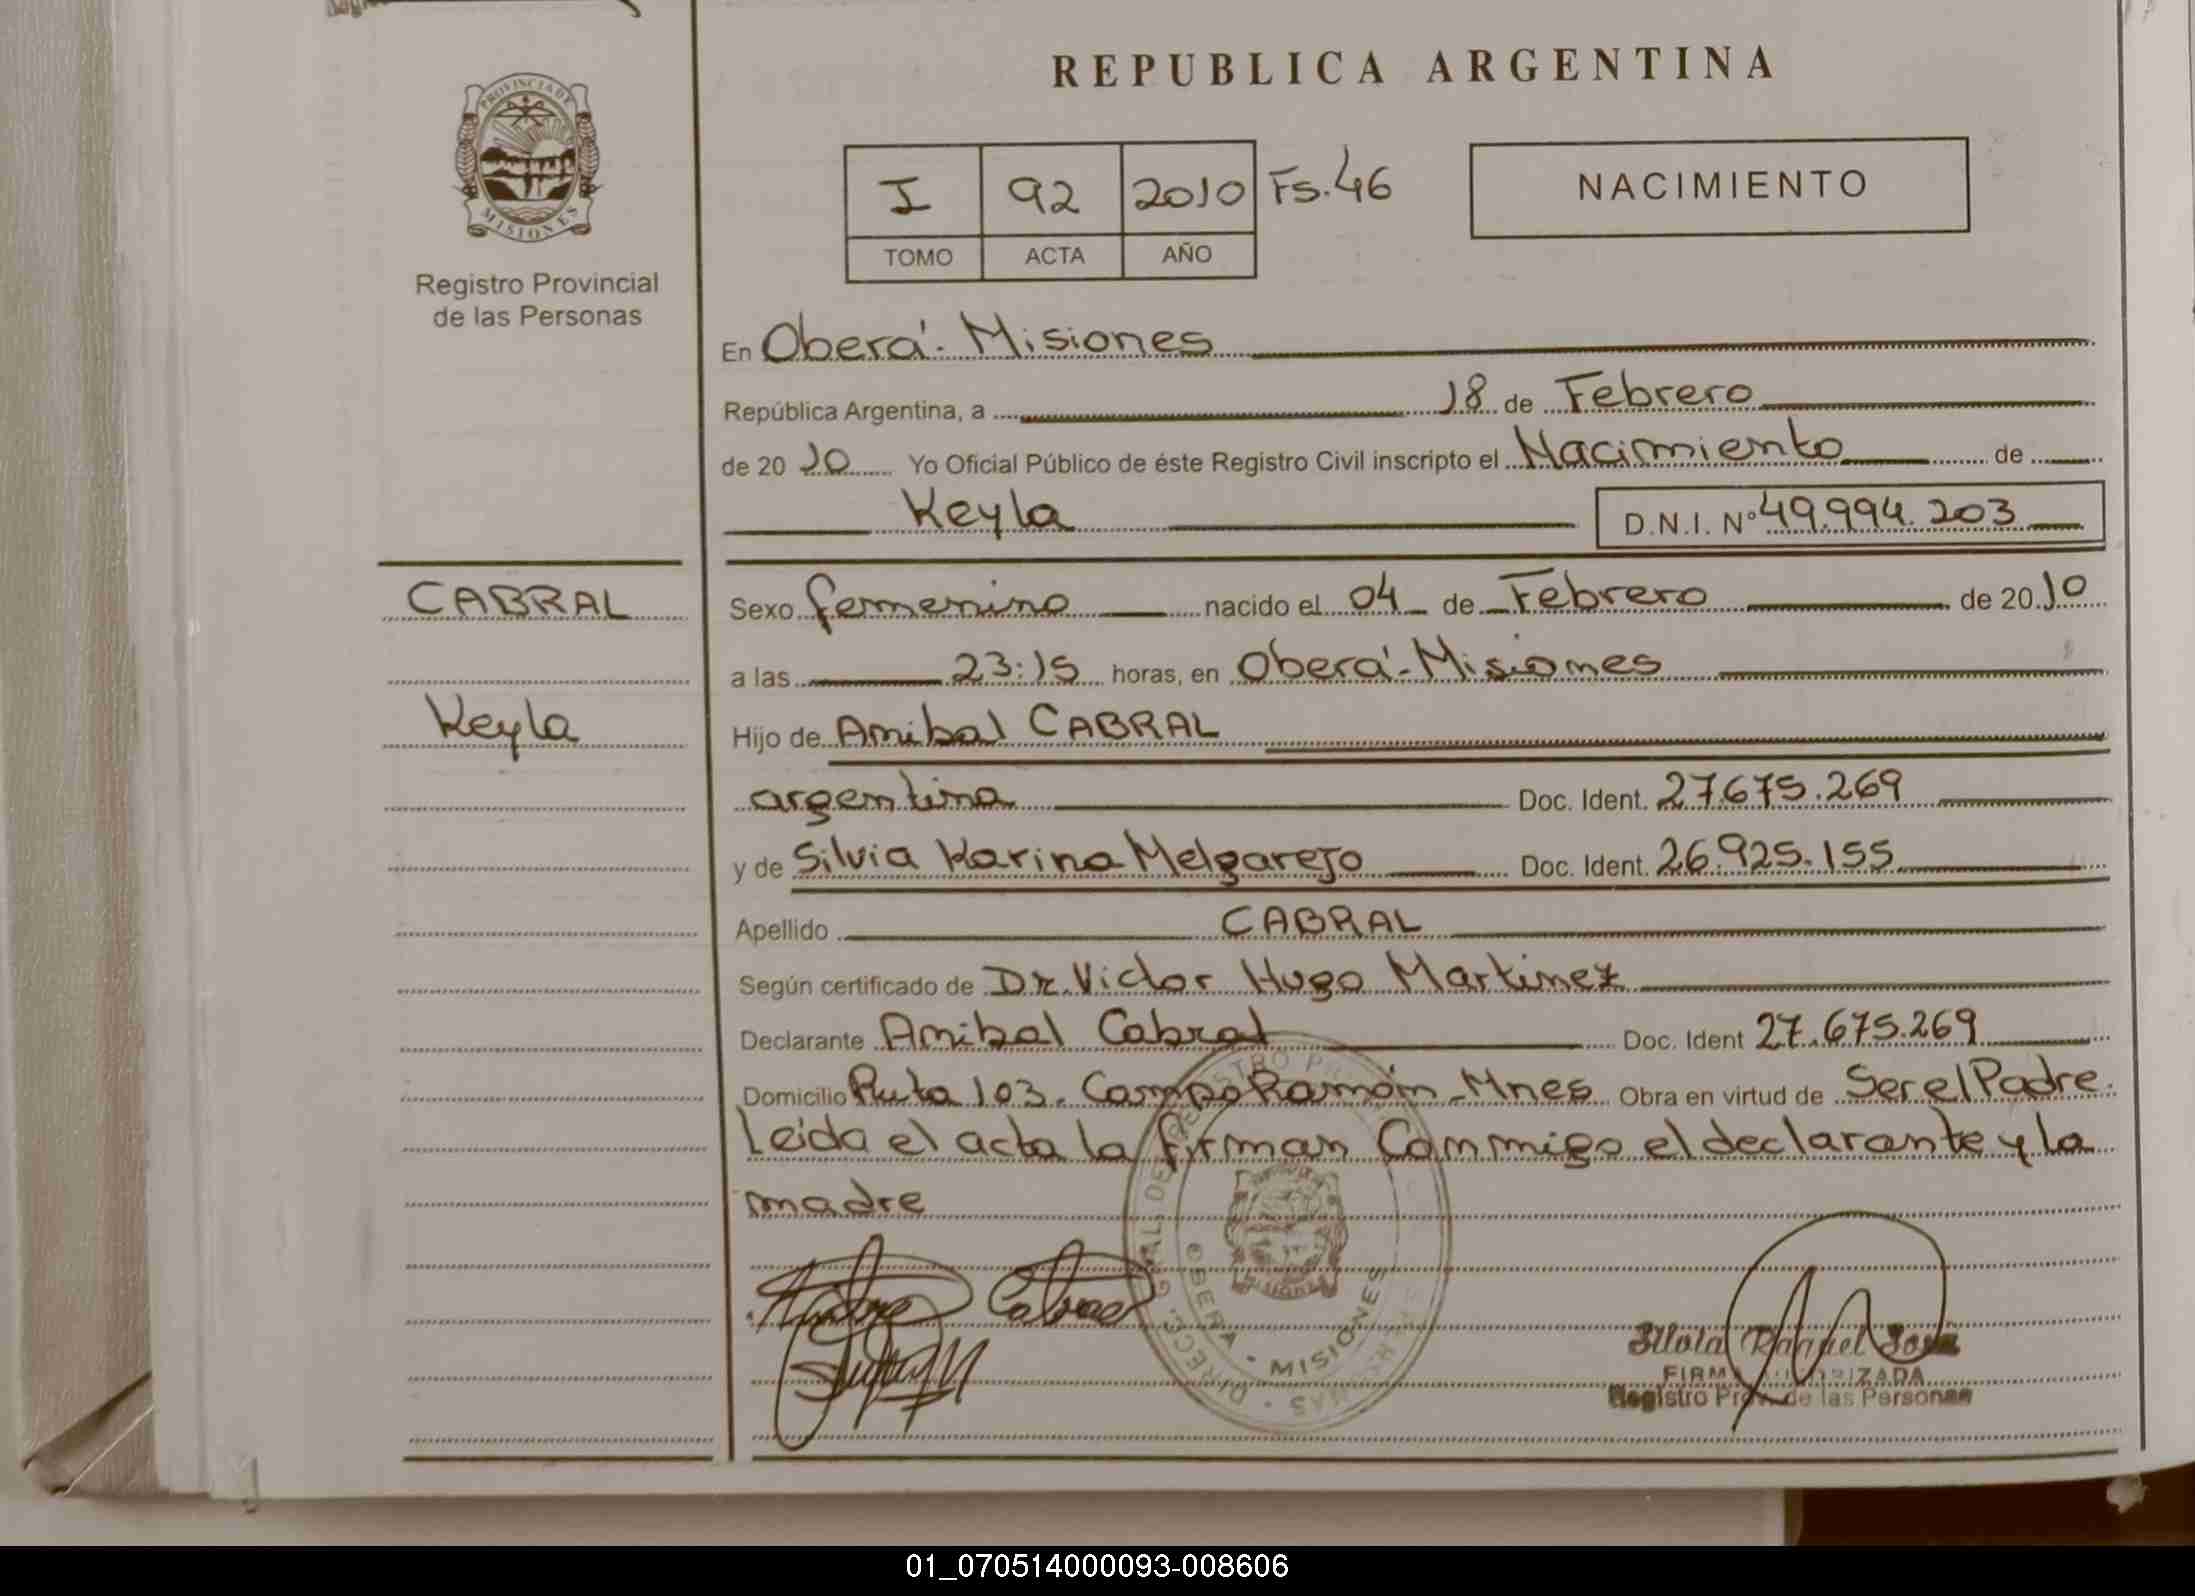 REPUBLICA ARGENTINA
PROVINCIA DE
MISIONES
Registro Provincial
de las Personas
I 92 2010 Fs. 46
TOMO ACTA AÑO
NACIMIENTO
En Oberá - Misiones
República Argentina, a 18 de Febrero
de 20 10 Yo Oficial Público de éste Registro Civil inscripto el Nacimiento de
Keyla D.N.I. Nº 49.994.203
CABRAL
Keyla
Sexo femenino nacido el 04 de Febrero de 20 10
a las 23:15 horas, en Oberá - Misiones
Hijo de Anibal CABRAL
argentina Doc. Ident. 27.675.269
y de Silvia Karina Melgarejo Doc. Ident. 26.925.155
Apellido CABRAL
Según certificado de Dr. Victor Hugo Martinez
Declarante Anibal Cabral Doc. Ident 27.675.269
Domicilio Ruta 103. Campo Ramón - Mnes Obra en virtud de Ser el Padre.
Leida el acta la firman Conmigo el declarante y la
madre
OBERA - MISIONES
Raquel
FIRMA AUTORIZADA
Registro Prov. de las Personas
01_070514000093-008606